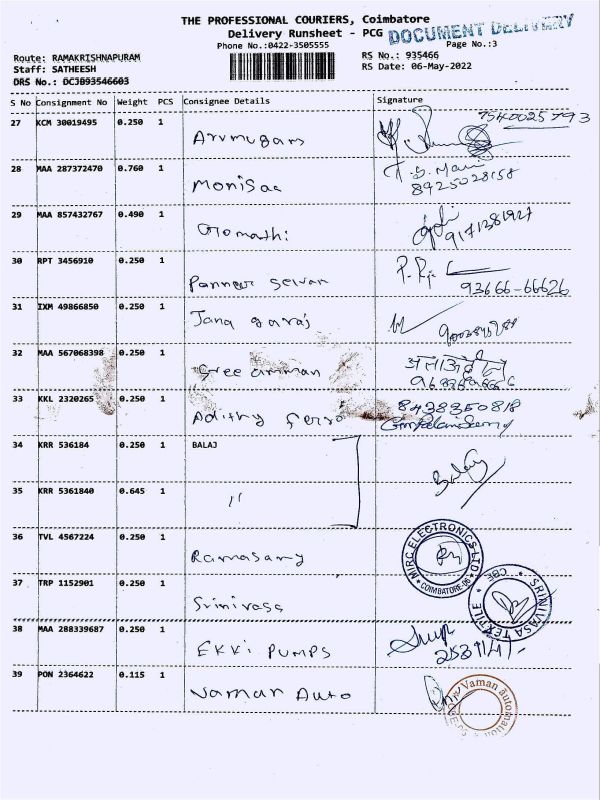 THE PROFESSIONAL COURIERS, Coimbatore
Delivery Runsheet - PCG
DOCUMENT DELIVERY
Phone No.:0422-3505555
Page No.:3
Route: RAMAKRISHNAPURAM
RS No.: 935466
Staff: SATHEESH
RS Date: 06-May-2022
DRS No.: DCJ093546603
S No Consignment No Weight PCS Consignee Details Signature
27 KCM 30019495 0.250 1 Arumugam 7540025793
28 MAA 287372470 0.760 1 Monisaa 8925028158
29 MAA 857432767 0.490 1 Gomathi 9171381927
30 RPT 3456910 0.250 1 Panneer Selvam 93666-66626
31 IXM 49866850 0.250 1 Jana
32 MAA 567068398 0.250 1 Sree amman
33 KKL 2320265 0.250 1 Adithy Ferro 8438350818
34 KRR 536184 0.250 1 BALAJ
Balaji
35 KRR 5361840 0.645 1 "
36 TVL 4567224 0.250 1 Ramasamy
MIRC ELECTRONICS LTD * COIMBATORE-06 *
37 TRP 1152901 0.250 1 Srinivasa
SRINIVASA TEXTILE * CBE *
38 MAA 288339687 0.250 1 EKKI PUMPS
39 PON 2364622 0.115 1 Vaman Auto
Vaman automation